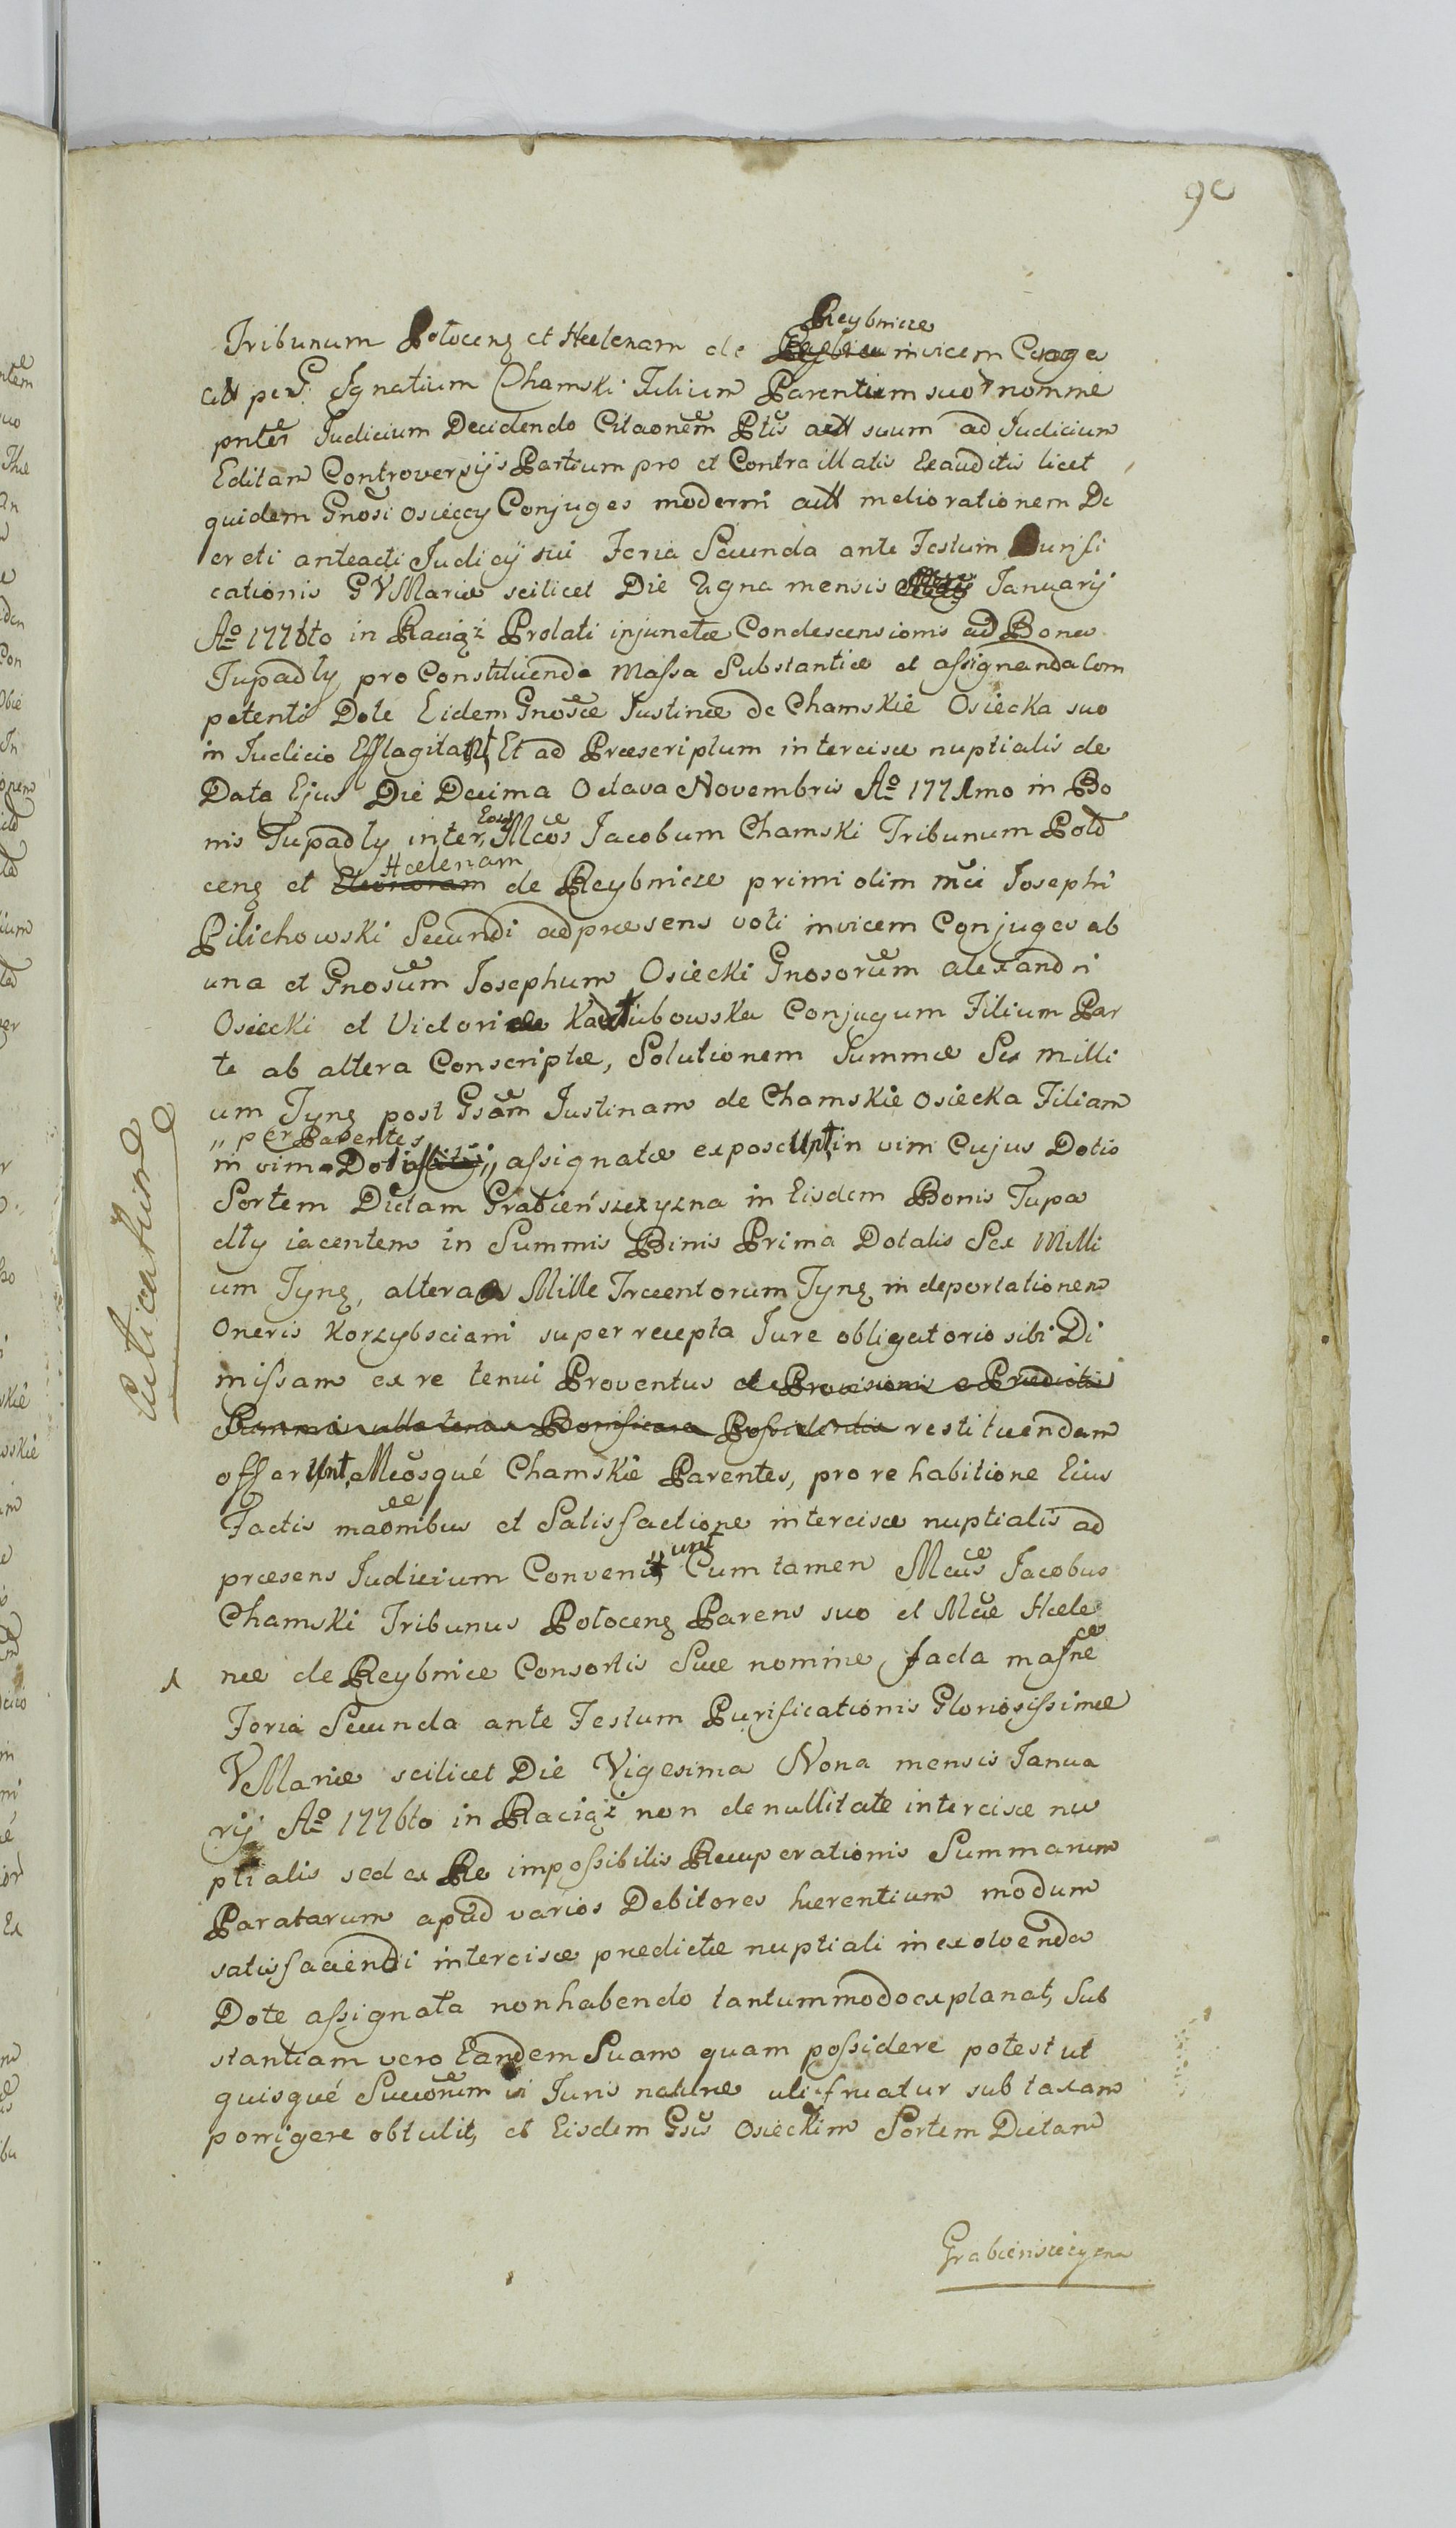 90
Reybnicze
Tribunum Potoceng et Helenam de invicem Conjuges
Ignatium Chamski Filium Parentum suor nomine
Judicium Decidendo Citaonem Ptis act suum ad Judicium
Editam Controversijs Partium pro et Contra illatis Exauditis licet
quidem Gnosi Osieccy Conjuges moderni meliorationem De
creti anteacti Judicij sui Feria Secunda ante Festum Purifi
cationis GVMariæ scilicet Die mensis Januarij
Ao 1776to in Raciąż Prolati injunctæ Condescensionis ad Bona
Tupadly pro Constituenda Massa Substantiæ et assignanda Com
petenti Dote Eidem Gnosæ Justinæ de Chamskie Osiecka suo
in Judicio Efflagitant, Et ad Præscriptum intercisæ nuptialis de
Data Ejus Die Decima Octava Novembris Ao 1771mo in Bo
nis Tupadly inter Mcos Jacobum Chamski Tribunum Poto
Hælenam
ceng et Eleonoram de Reybnicze primi olim Mci Josephi
Pilichowski Secundi ad præsens voti invicem Conjuges ab
una et Gnosum Josephum Osiecki Gnosorum Alexandri
Osiecki et Victoriæ Conjugum Filium Par
te ab altera Conscriptæ, Solutionem Summæ Sex Milli
um Tyng post Gsam Justinam de Chamskie Osiecka Filiam
„ per Parentes
in vim Dotis „ assignatæ exposcunt, in vim Cujus Dotis
Sortem Dictam Grabieńszczyzna in Eisdem Bonis Tupa
dly iacentem in Summis Binis Prima Dotalis Sex Milli
um Tyng, altera Mille Trecentorum Tyng in deportationem
Oneris Korzybsciani super recepta Jure obligatorio sibi Di
missam ex re tenui Proventus et Provisionis a Prædictis
Summis ullatenus Bonificare Possidentis restituendam
offerunt, Mcosqué Chamskie Parentes, pro rehabitione Eius
Factis maonibus et Satisfactione intercisæ nuptialis ad
unt
præsens Judicium Conveni„ Cum tamen Mcus Jacobus
Chamski Tribunus Potoceng Parens suo et Mcæ Hæle
næ de Reybnice Consortis Suæ nomine, facta
Feria Secunda ante Festum Purificationis Gloriosissimæ
VMariæ scilicet Die Vigesima Nona mensis Janua
rij Ao 1776to in Raciąż non de nullitate intercisæ nu
ptialis sed ex Re impossibilis Recuperationis Summarum
Paratarum apud varios Debitores hærentium modum
satisfaciendi intercisæ prædictæ nuptiali in exolvenda
Dote assignata non habendo tantummodo explanat, Sub
stantiam vero Eandem Suam quam possidere potest ut
quisqué Juris naturæ uti fruatur sub taxam
porrigere obtulit, et Eisdem Gsis Osieckim Sortem Dictam
Grabieńszczyzna